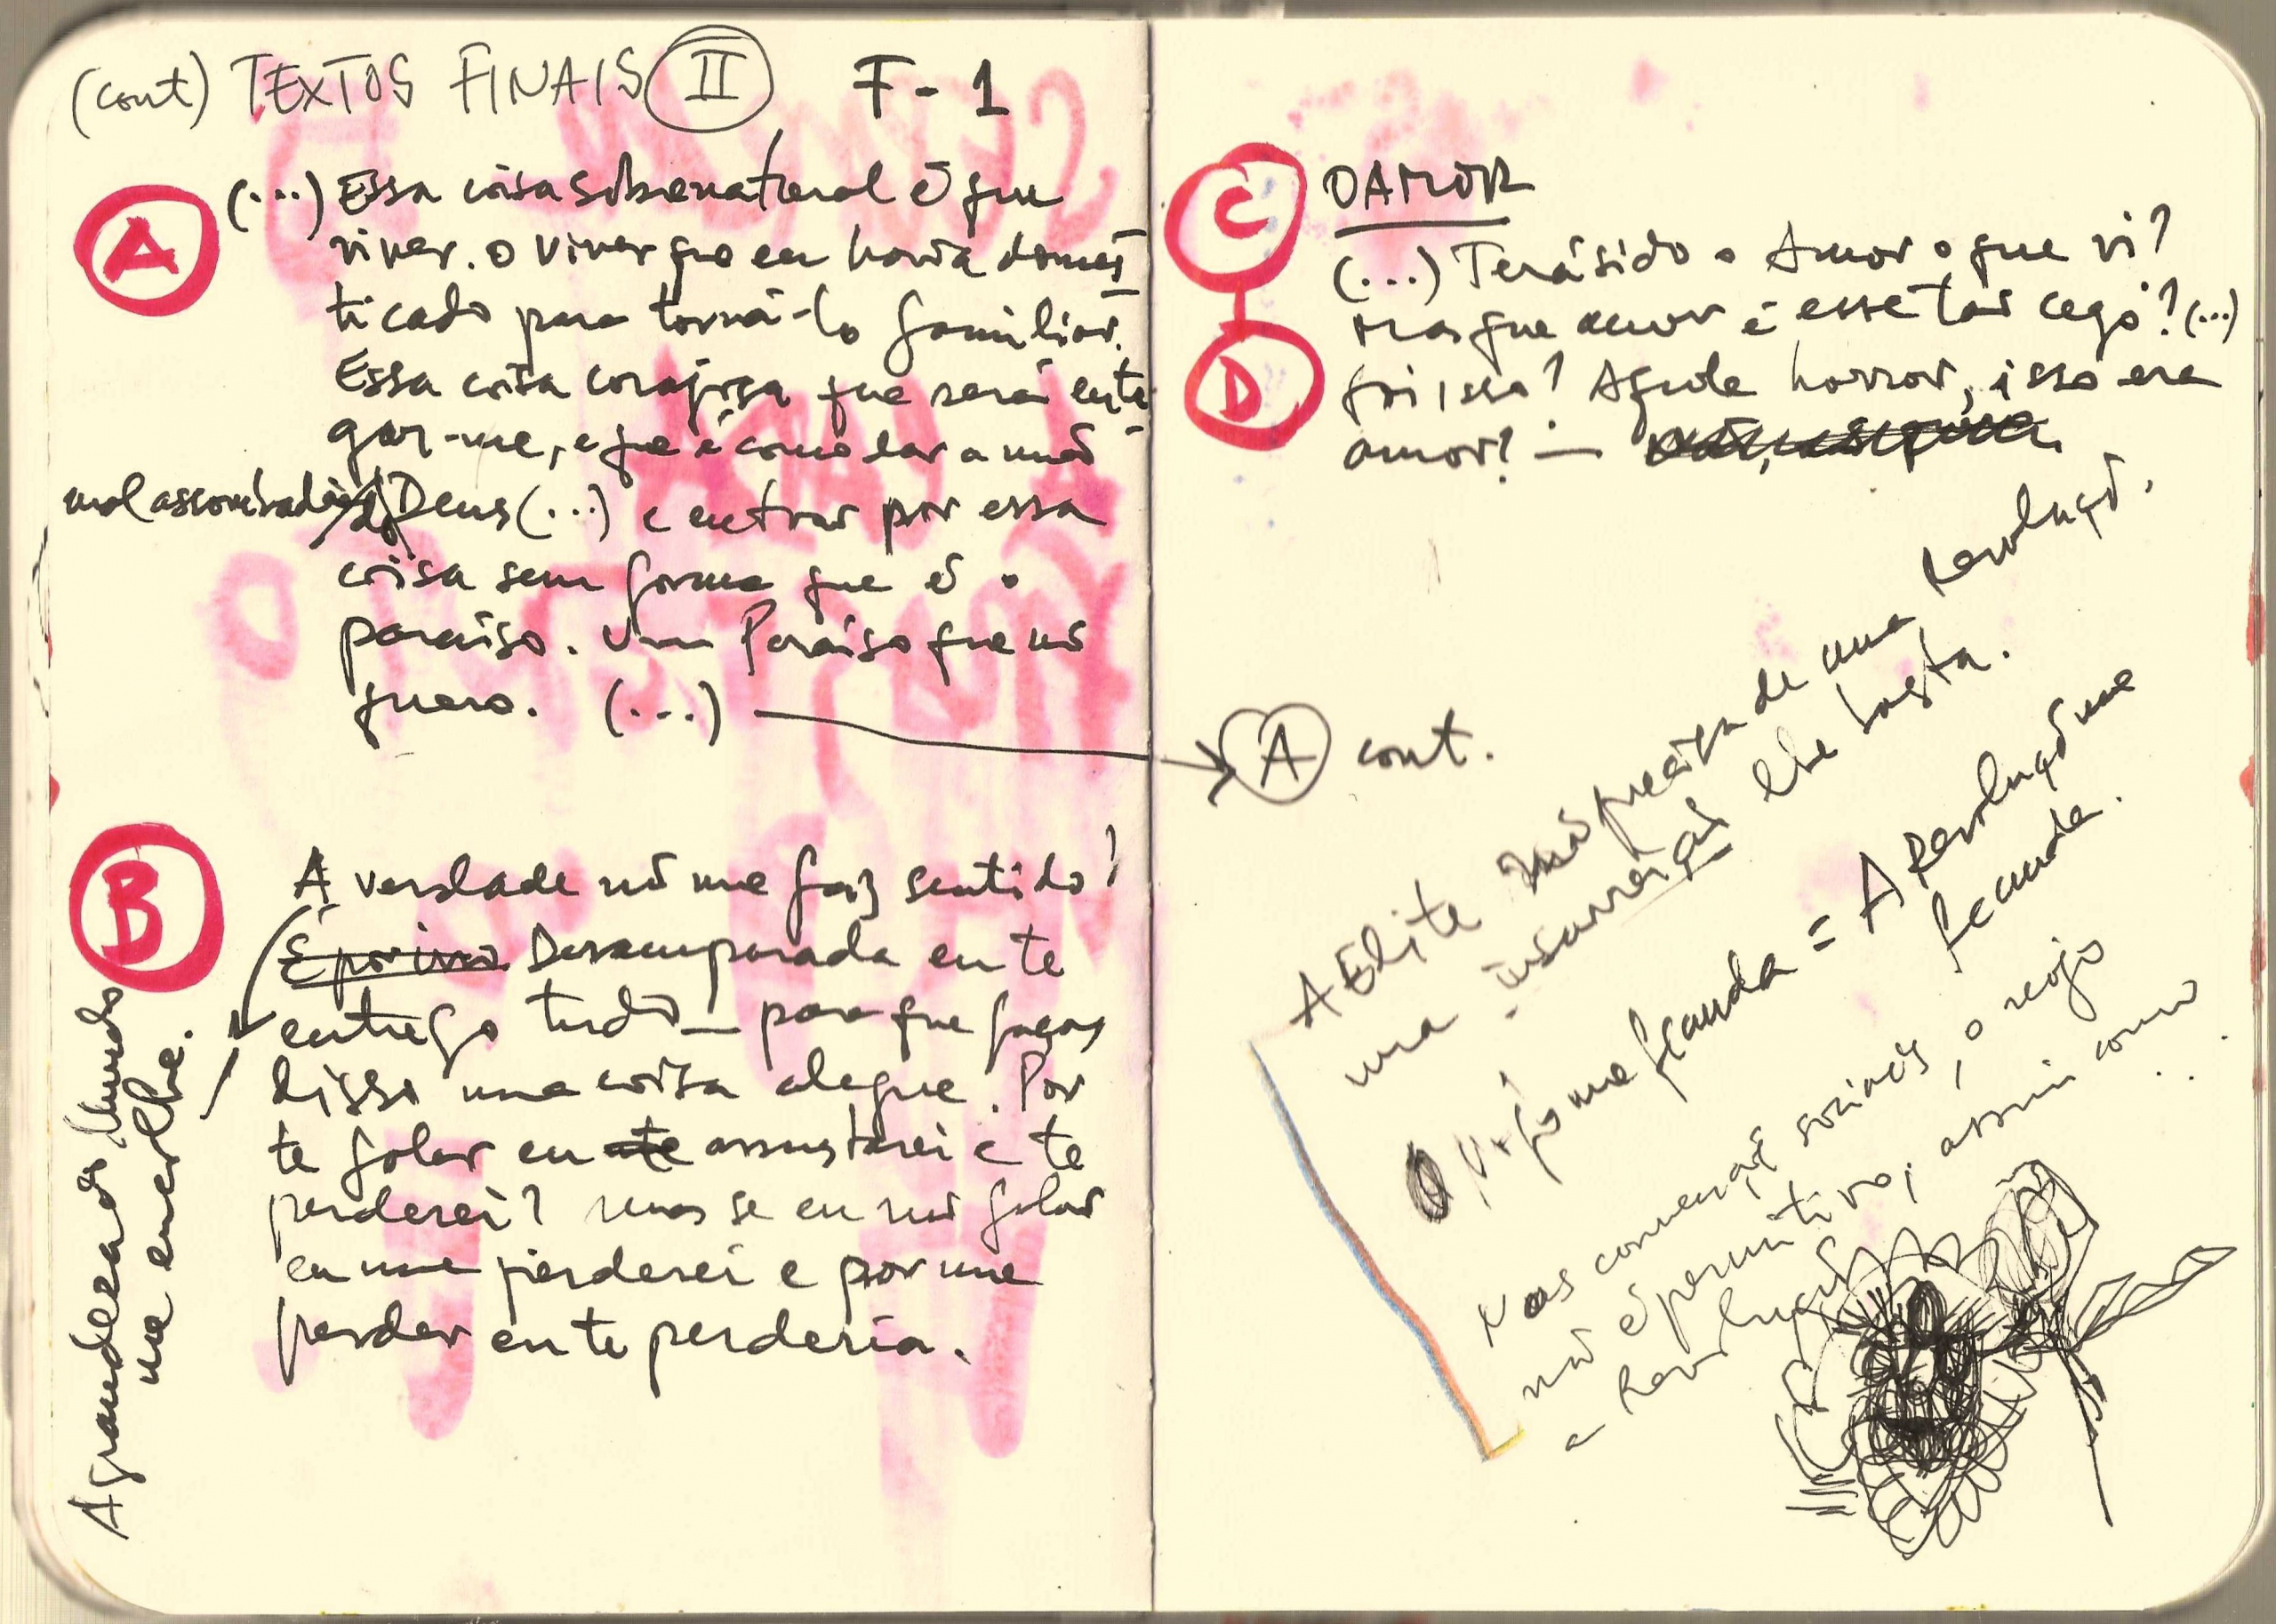 (cont) TEXTOS FINAIS II F-1
A
(...) Essa coisa sobrenatural é que
viver. O viver que eu havia domes
ticado para torná-lo familiar.
Essa coisa corajosa que será entre
gar-me, e que é como dar a mão
mal assombrada de Deus (...) e entrar por essa
coisa sem forma que é o
paraíso. Um Paraíso que nõ
quero. (...)
B
A verdade nõ me faz sentido!
É por isso Desamparada eu te
entrego tudo — para que faças
disso uma coisa alegre. Por
te falar eu te assustarei e te
perderei? mas se eu nõ falar
eu me perderei e por me
perder eu te perderia.
A grandeza do Mundo
me encolhe.
C
DAMOR
(...) Terá sido o Amor o que vi?
D
Mas que amor é esse tão cego? (...)
foi isso? Aquele horror, isso era
amor? —
A cont.
A Elite nõ precisa de uma Revoluçõ.
uma insurreição lhe basta.
O V. fo me fecunda = A Revoluçõ me
fecunda.
Nas convenções sociais, o nojo
nõ é permitivo, assim como
a Revoluçõ